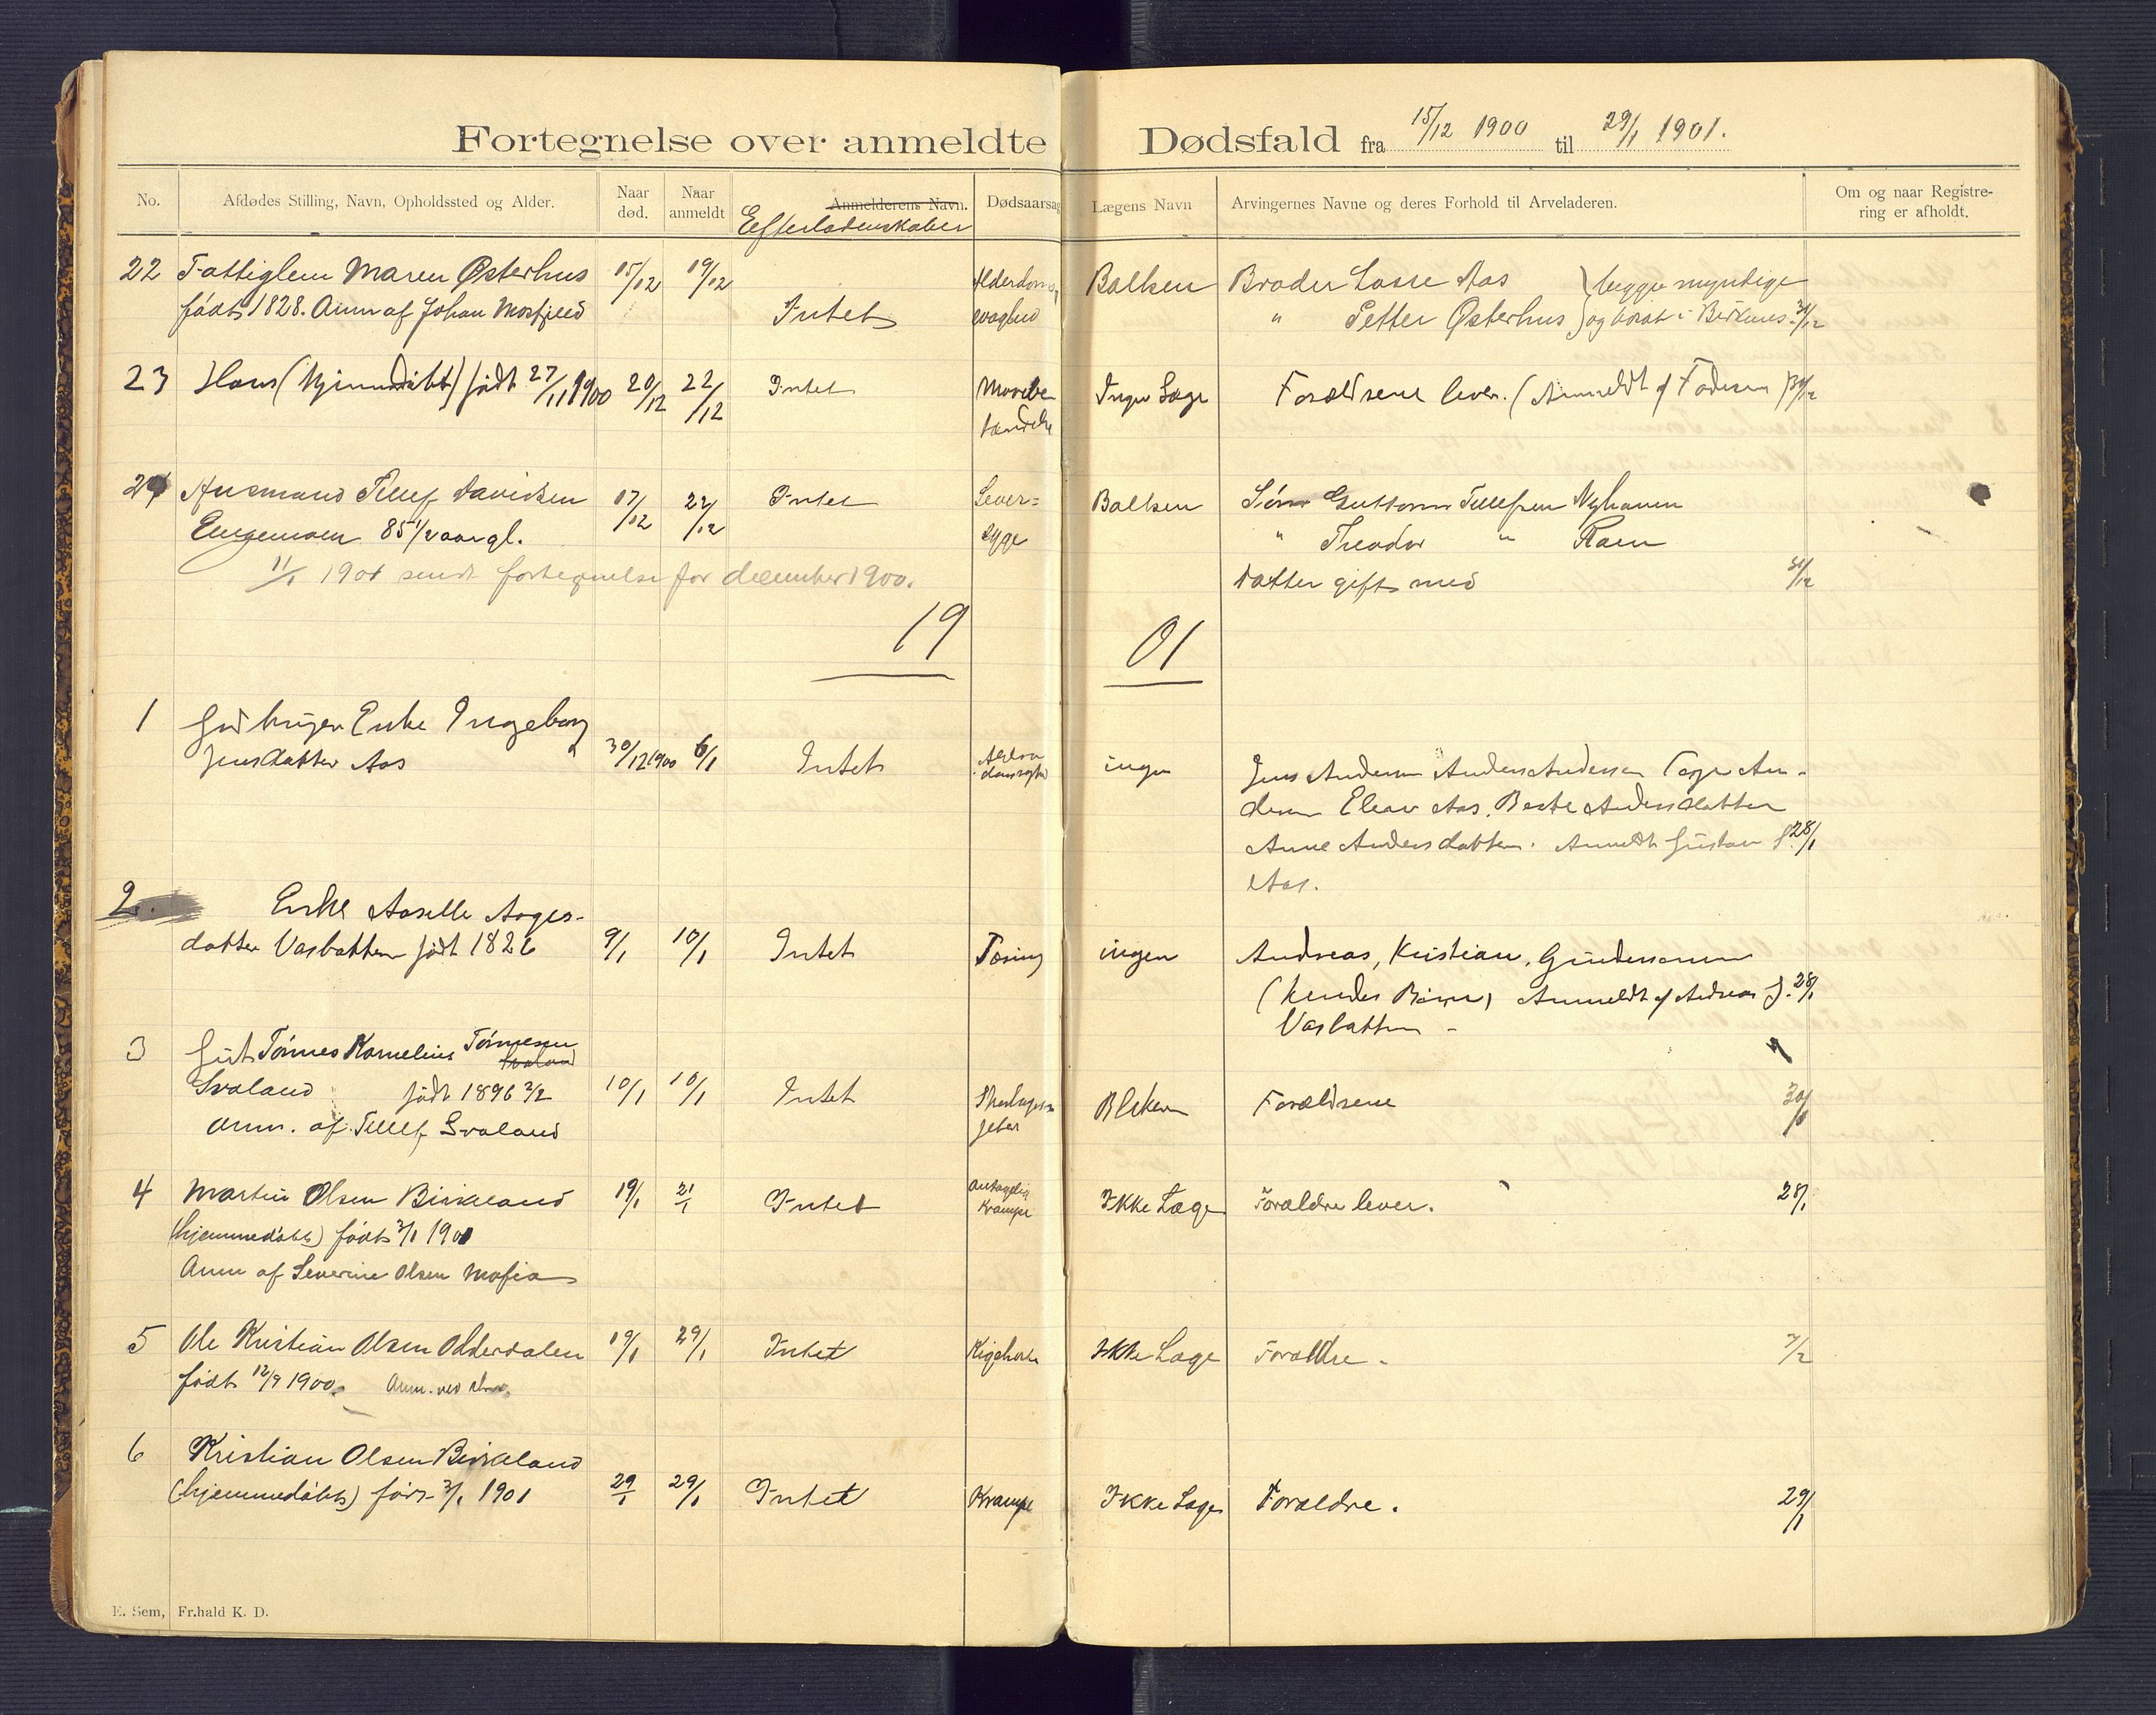 Fortegnelse over anmeldte Dødsfald fra 15/12 1900 til 29/1 1901.
No. Afdødes Stilling, Navn, Opholdssted og Alder. Naar død. Naar anmeldt Anmelderens Navn. Efterladenskaber Dødsaarsag Lægens Navn Arvingernes Navne og deres Forhold til Arveladeren. Om og naar Registrering er afholdt.
22 Fattiglem Maren Østerhus 15/12 19/12 Alderdoms Balken Broder Lasse Aas } begge myndige
født 1828. Anm af Johan Mosfjeld Intet svaghed " Petter Østerhus } og boat i Birkenes. 31/12
23 Hans (hjemmedøbt) født 27/11 1900 20/12 22/12 Intet Ingen Læge Forældrene lever. (Anmeldt af Faderen)
24 Tellef Davidsen 17/12 22/12 Intet Lever= Balken Søn Guttorm Tellefsen Nyhaven
85 1/2 aar gl. syge " Theodor "
11/1 1901 sendt fortegnelse for december 1900. Datter gift med 31/12
19 01
1 Enke Ingeborg
Jensdatter Aas 30/12 1900 6/1 Intet ingen Jens Andersen Anders Andersen An-
dersen Aas. Andersdatter
Anne Andersdatter. Anmeldt Gustav 28/1
Aas.
2. Enke Aaselle Aages-
datter Vasbotten født 1826 9/1 10/1 Intet Tæring ingen Andreas, Kristian, Gundersen
(hendes Børn) Anmeldt af Andreas J. 28/1
Vasbotten
3 Gut Tønnes Kornelius Tønnesen
Svaland født 1896 2/2 10/1 10/1 Intet Forældrene 30/1
Anm. af Tellef Svaland
4 Martin Olsen Birkeland 19/1 21/1 Intet Antagelig Krampe Ikke Læge Forældre lever. 28/1
(hjemmedøbt) født 3/1 1901
Anm af Severine Olsen
5 Ole Kristian Olsen Oddersdalen 19/1 29/1 Intet Kighoste Ikke Læge Forældre. 7/2
født 12/9 1900. Anm. ved
6 Kristian Olsen Birkeland
(hjemmedøbt) født 3/1 1901 29/1 29/1 Intet Krampe Ikke Læge Forældre. 29/1
E. Sem, Fr.hald K. D.